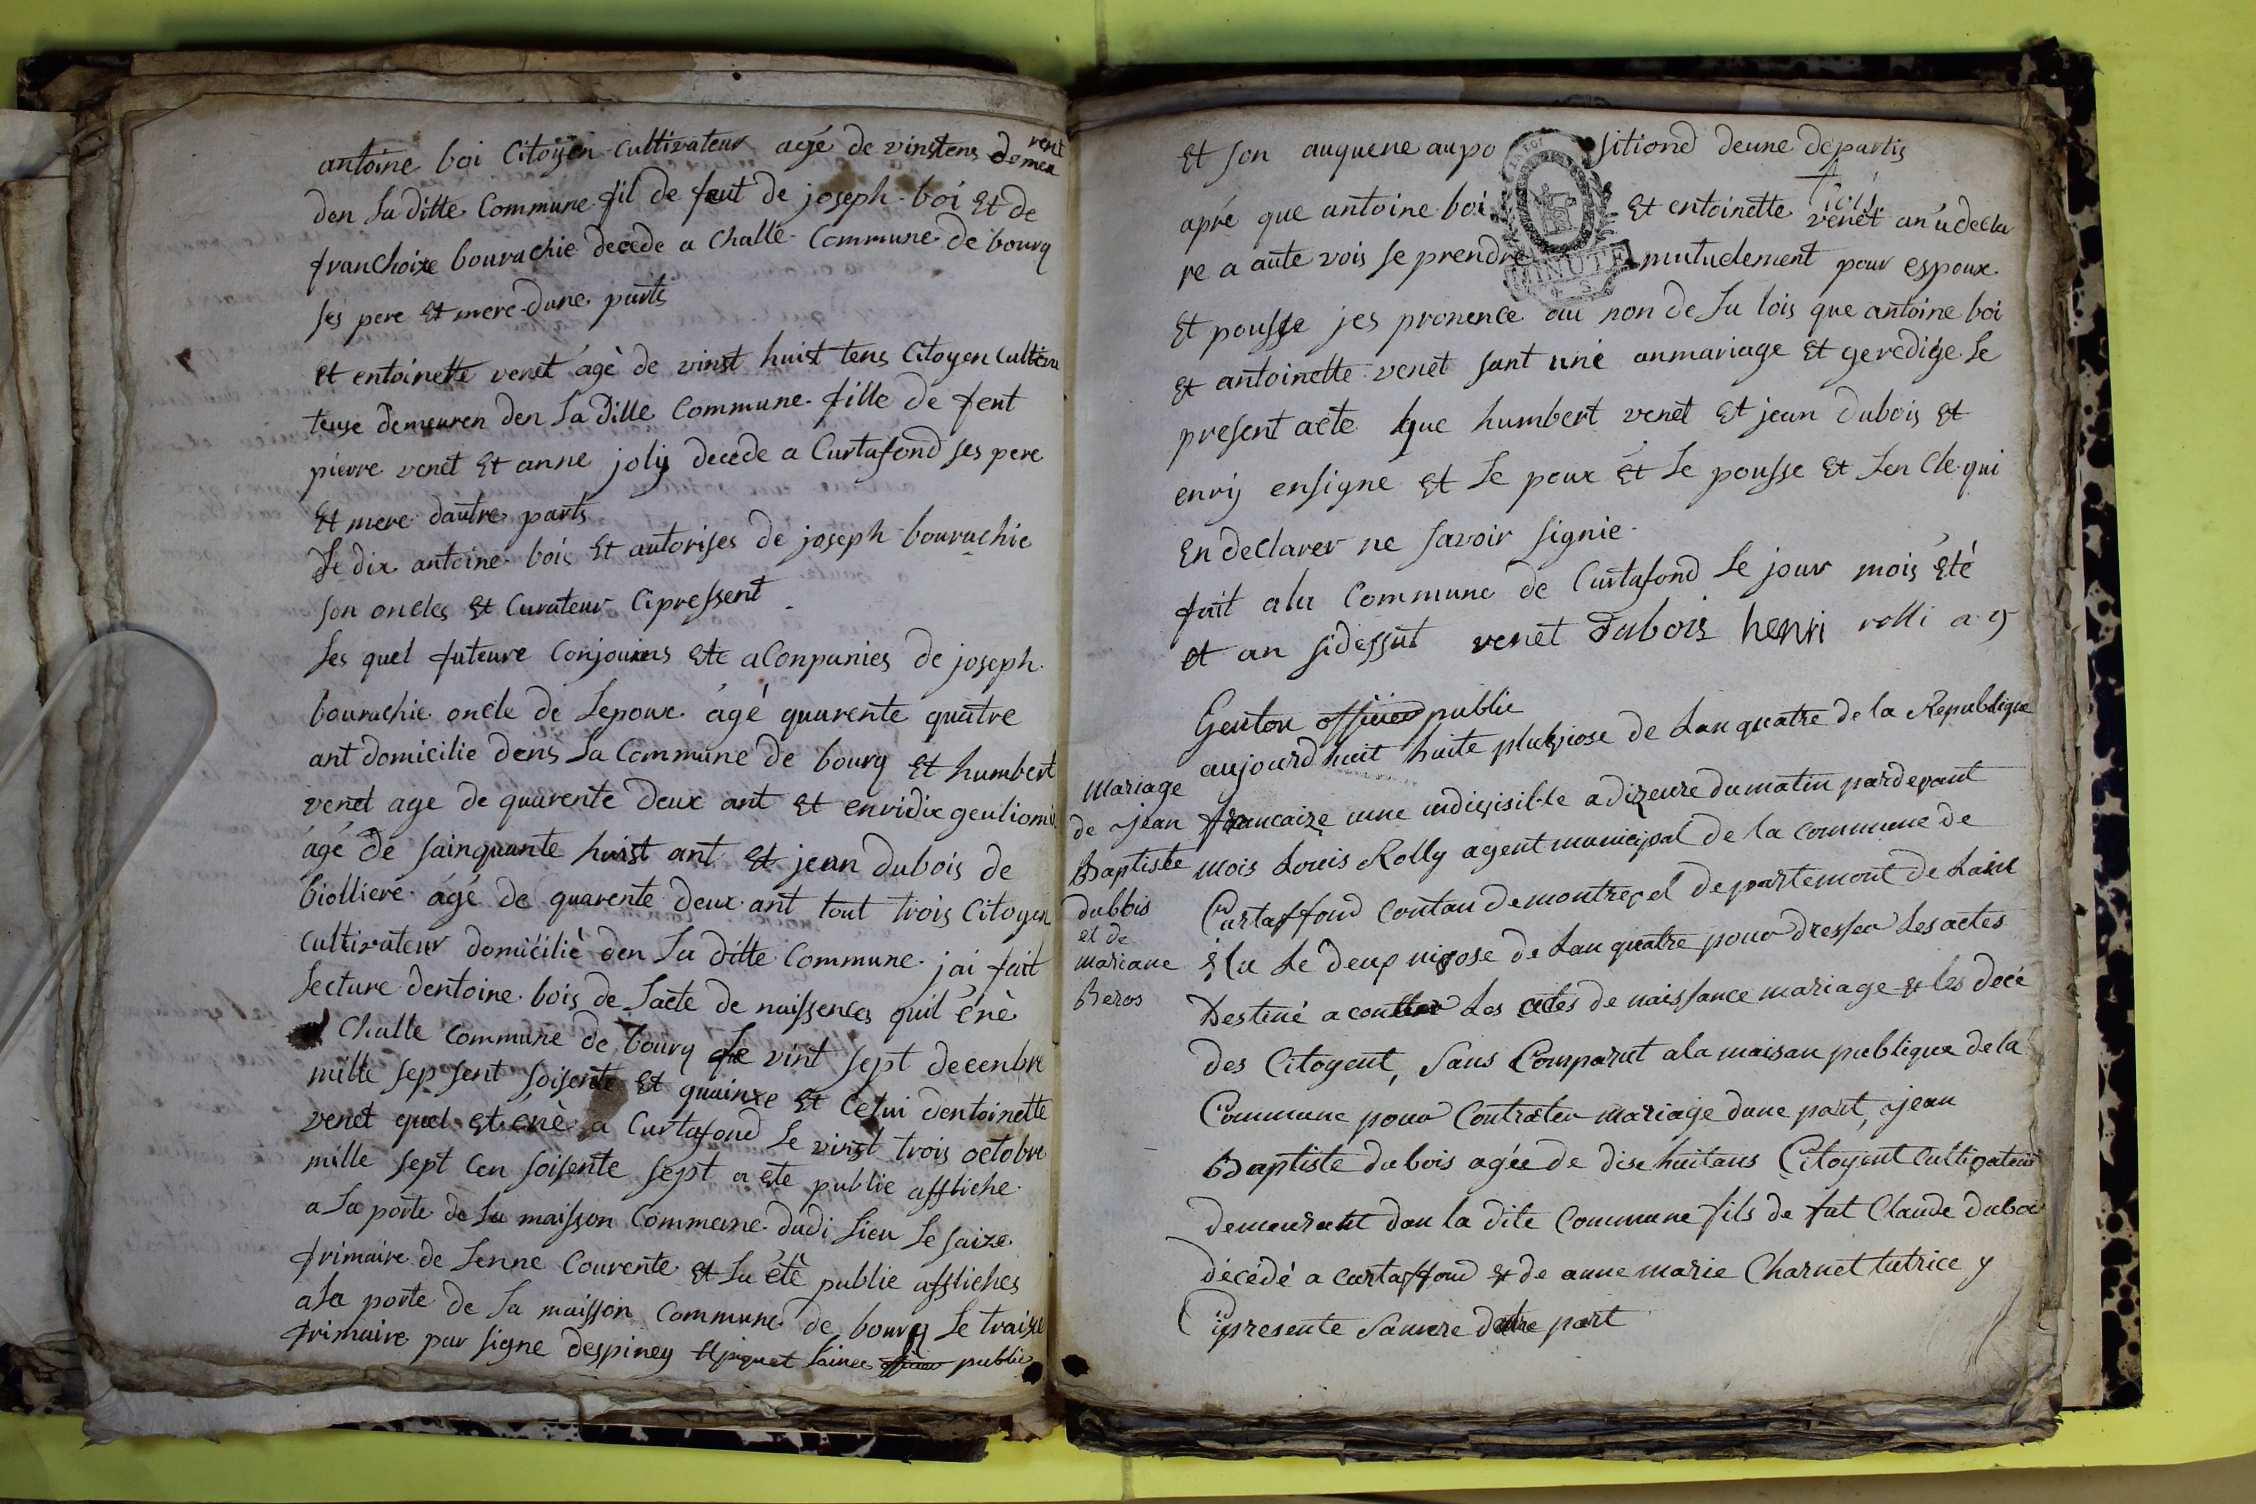 antoine boi Citoyen Cultivateur agé de vinstens demeu
rent
den la ditte Commune fil de feut de joseph boi Et de
franchoixe bourachie decede a Challe Commune de bourg
ses pere Et mere dune parts
Et entoinette venet âgè de vinst huist tens Citoyen Cultiva
teuse demeuren den la ditte Commune fille de feut
pierre venet Et anne joly decede a Curtafond ses pere
Et mere dautre parts
le dix antoine bois Et autorises de joseph bourachie
son oncles Et Curateur Cipressent
les quel futeure Conjouins Ete aConpanies de joseph
bourachie oncle de lepoux âgé quarente quatre
ant domicilie dens la Commune de bourg Et humbert
venet age de quarente deux ant Et enridix
âgé de sainquante huist ant Et jean dubois de
biolliere âgé de quarente deux ant tout trois Citoyen
Cultivateur domiciliè den la ditte Commune jai fait
lecture dentoine bois de lacte de naissences quil énè
a Challe Commune de bourg le vint sept decenbre
mille sep sent soisente Et quainxe Et Celui dentoinette
venet quel Et énè a Curtafond le vinst trois octobre
mille sept Cen soisente sept a ete publie affliche
a la porte de la maisson Commune dudi lieu le saize
frimaire de lenne Courente Et la été publie affliches
ala porte de la maisson Commune de bourg le traixe
frimaire par signe despiney public
Et son auquene aupo sitiond deune departis
apré que antoine boi Et entoinette venet an a decla
re a aute vois se prendre mutuelement pour espoux
MINUTE
Et pousse jes pronence au non de la lois que antoine boi
Et antoinette venet sont unié anmariage Et geredigé le
present acte que humbert venet Et jean dubois Et
enrij ensigne Et le poux Et le pousse Et len Cle qui
En declarer ne savoir signie
fait ala Commune de Curtafond le jour mois Eté
et an sidessut venet Dubois henri rolli a g
Genton officier public
aujourdhuit huite pluviose de Lan quatre de la Republique
francaize une indivisible a dizeure du matin pardevant
mois Louis Rolly agent municipal de la commune de
Curtaffond Contau de montrevel departemont de Lain
Elu Le deux nivose de Lan quatre pour dresser Les actes
Destiné a Les actes de naissance mariage et les decé
des Citoyent, Sans Comparut ala maison publique de la
Commune pour Contrater mariage dune part, jean
Baptiste dubois agée de dise huit ans Citoyent Cultivateur
demeurant dan la dite Commune fils de fut Claude duboi
décédé a curtaffond et de anne marie Charnet tutrice y
Cipresente Samere dotre part
Mariage
de jean
Baptiste
dubbis
et de
mariane
Beros